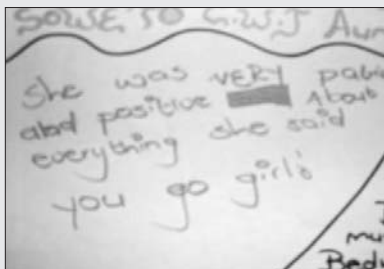 SOWETO G.W.J Aun
She was VERY pati
abd positive About
everything she said
you go girls
mu
Bedr